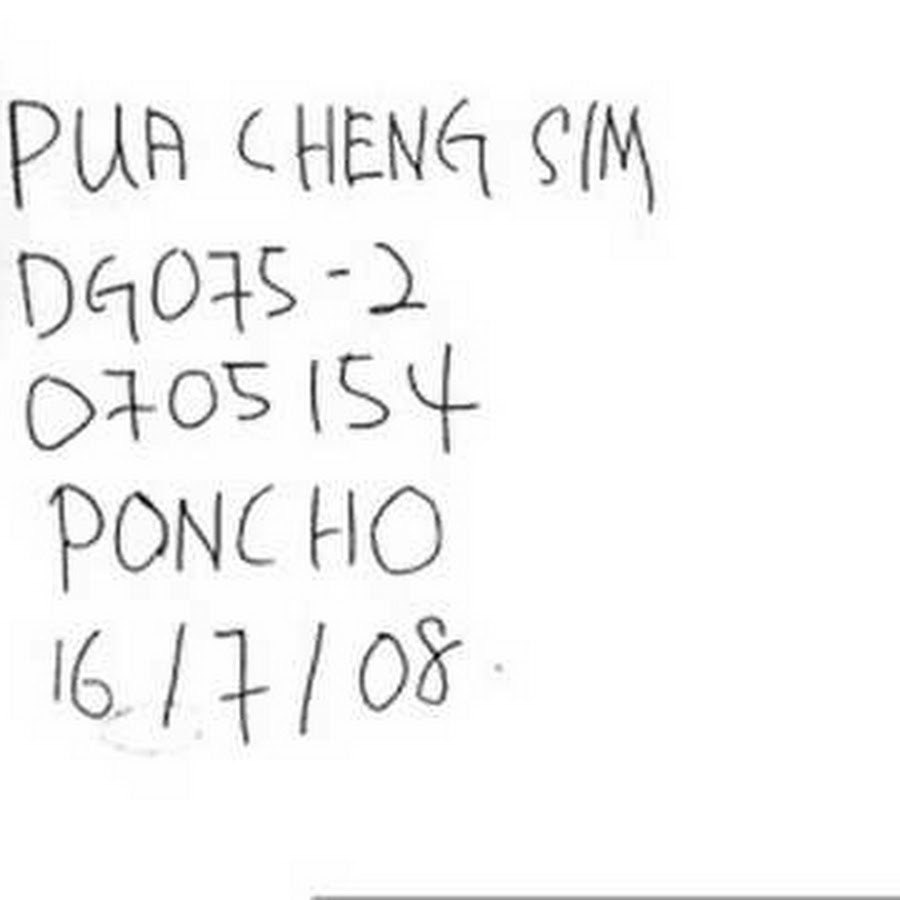 PUA CHENG SIM
DG075-2
0705154
PONCHO
16/7/08.